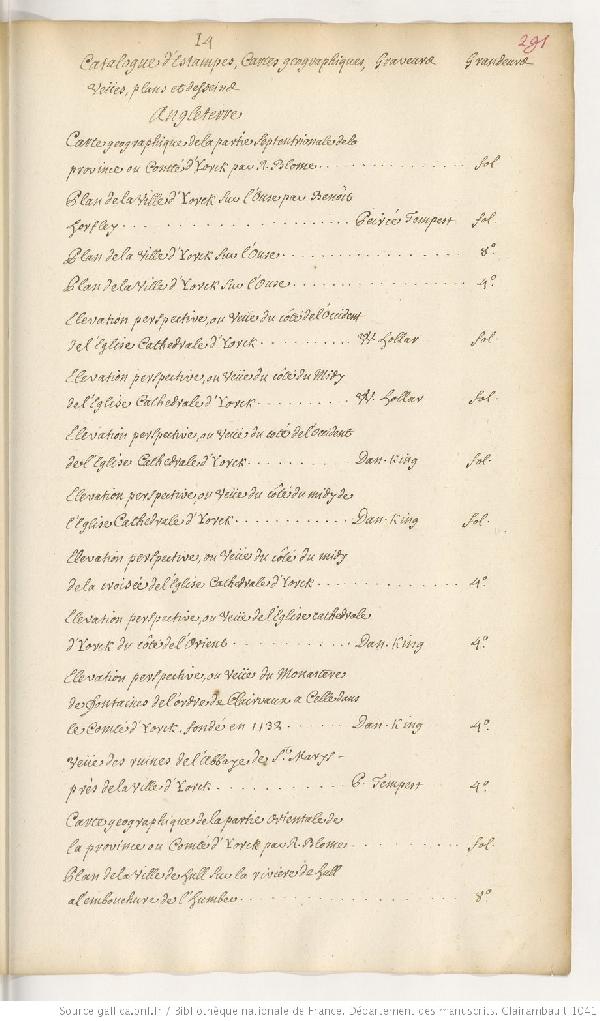 14
291
Catalogue d'Estampes, Cartes geographiques, Graveurs Grandeurs
Veües, plans et desseins
Angleterre
Carte geographique de la partie Septentrionale de la
province ou Comté d'Yorck par R. Blome. . . . . . . . . . . . . . fol
Plan de la Ville d'Yorck sur l'Ouse par Benoist
horsley. . . . . . . . . . . . . . . . . . . . Peirce Tempest fol.
Plan de la Ville d'Yorck sur l'Ouse. . . . . . . . . . . . . . . . 8°.
Plan de la Ville d'Yorck sur l'Ouse. . . . . . . . . . . . . . . . 4°.
Elevation perspective, ou Veüe du côté de l'Occident
de l'Eglise Cathedrale d'Yorck. . . . . . . . . . W. Hollar fol.
Elevation perspective, ou Veüe du côté du Midy
de l'Eglise Cathedrale d'Yorck. . . . . . . . . . W. Hollar fol.
Elevation perspective, ou Veüe du coté de l'Occident
de l'Eglise Cathedrale d'Yorck. . . . . . . . Dan. King fol.
Elevation perspective, ou Veüe du côté du midy de
l'Eglise Cathedrale d'Yorck. . . . . . . . . . . Dan. King fol.
Elevation perspective, ou Veüe du côté du midy
de la croisée de l'Eglise Cathedrale d'Yorck. . . . . . . . . . . . . 4°.
Elevation perspective, ou Veüe de l'Eglise cathedrale
d'Yorck du côté de l'Orient. . . . . . . . . . . Dan. King 4°.
Elevation perspective, ou Veüe du Monastere
de fontaines de l'ordre de Clairvaux a Celle dans
le Comté d'Yorck, fondé en 1132. . . . . . Dan. King 4°.
Veüe des ruines de l'Abbaye de Ste. Marys-
près de la Ville d'Yorck. . . . . . . . . . . . P. Tempest 4°.
Carte geographique de la partie Orientale de
la province ou Comté d'Yorck par R. Blome. . . . . . . . . . fol.
Plan de la Ville de hull sur la riviere de hull
a l'embouchure de l'humber. . . . . . . . . . . . . . . . . . . . 8°
Source gallica.bnf.fr / Bibliothèque nationale de France. Département des manuscrits. Clairambault 1041